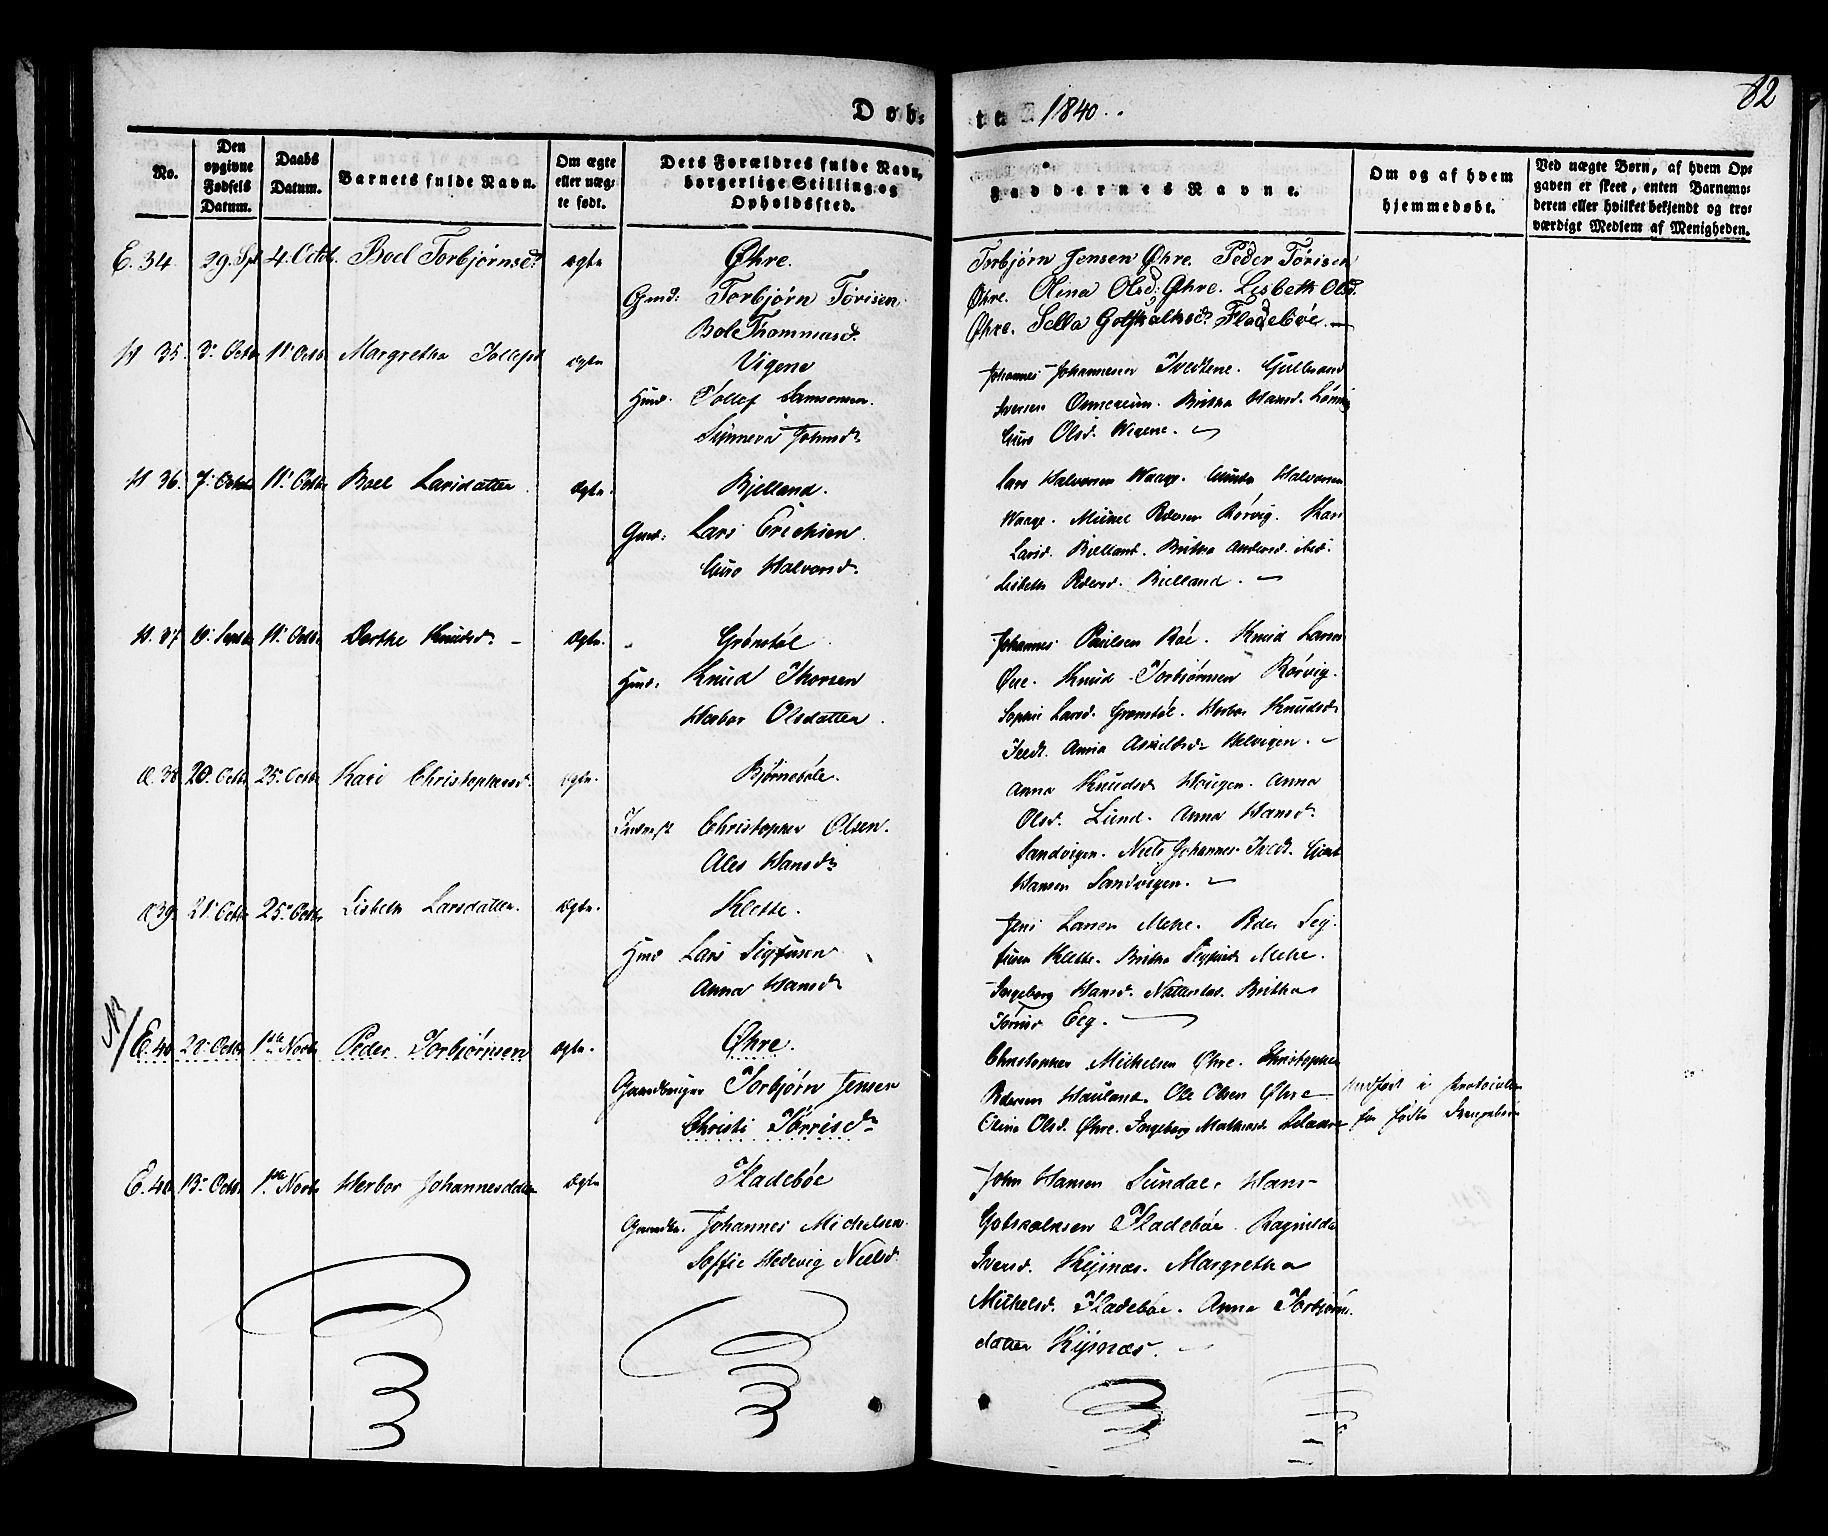 Døb-
te 1840.
82
No.
Den opgivne Fødsels Datum.
Daabs Datum.
Barnets fulde Navn.
Om ægte eller uægte født.
Dets Forældres fulde Navn, borgerlige Stilling og Opholdssted.
Faddernes Navne.
Om og af hvem hjemmedøbt.
Ved uægte Børn, af hvem Opgaven er skeet, enten Barnemoderen eller hvilket bekjendt og troværdigt Medlem af Menigheden.
E. 34. 29. Spt. 4. Octbr. Boel Torbjørnsd. ægte Øhre.
Gmd: Torbjørn Törisen
Bole Thommasd.
Torbjørn Jensen Øhre. Peder Törisen
Øhre. Olina Olsd. Øhre. Lisbeth Olsd.
Øhre. Sella Gotskalksd. Fladebøe.
35. 3. Octb. 11. Octb. Margretha Tollefsd. ægte Vigene
Hmd. Tollef Samsonsen.
Synnera Johnsd.
Johannes Johannesen Tvedtene. Gulbrand
Iversen Britha Hansd.
Guro Olsd. Wigene.
36. 7. Octbr. 11. Octbr. Boel Larsdatter ægte. Bjelland.
Gmd: Lars Erichsen
Guro Halvorsd.
Lars Halvorsen Waage. Halvorsen
Waage. Michel Pedersen Rörvig. Kari
Larsd. Bjelland. Britha Andersd. ibid.
Lisbeth Pedersd. Bielland.
37 11. Octbr. Dorthe Knudsd. ægte. Grønstøl
Hmd: Knud Thorsen
Herbor Olsdatter
Johannes Paulsen Böe. Knud Larsen
Øvre. Knud Torbjørnsen Rörvig.
Sophie Larsd. Grønstøl. Herbor Knudsd.
Tvedt. Anna Helvigen.
38 20. Octbr. 25. Octbr. Kari Christophersd. ægte. Bjørnebøle.
Christopher Olsen.
Ales Hansd.
Anna Knudsd. Haugen. Anna
Olsd. Lund. Anna Hansd.
Sandvigen. Niels Johannes. Tvedt.
Hansen Sandvigen.
39. 21. Octbr. 25. Octbr. Lisbeth Larsdatter. ægte. Klette.
Hmd Lars Sigfusen
Anna Hansd.
Jens Larsen Mehe. Peder Sig-
fusen Klette. Britha Sigfusd. Mehe.
Ingeborg Hansd. Britha
Eeg.
NB
E. 40 Octbr. 1ste Novbr. Peder Torbjørnsen ægte. Øhre.
Gaardbruger Torbjørn Jensen
Christi Törrisd.
Christopher Michelsen Øhre. Christopher
Pedersen Hauland. Ole Olsen Øhre
Olina Olsd. Øhre. Ingeborg Mathiasd.
Indført i Protocolen
for fødte
E. 40 13. Octbr. 1ste Novbr. Herbor Johannesdatter ægte Fladebøe
Gaardbr. Johannes Michelsen.
Soffie Hedevig Nielsd.
John Hansen Sundal. Hans
Gotskalksen Fladebøe. Ragnilde
Iversd. Kijsnæs. Margretha
Michelsd. Fladebøe. Anna Torbjørns-
datter Kijsnæs.